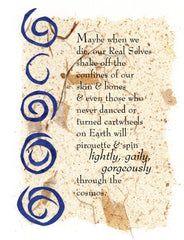 Maybe when we
die, our Real Selves
shake off the
confines of our
skin & bones
& even those who
never danced or
turned cartwheels
on Earth will
pirouette & spin
lightly, gaily,
gorgeously
through the
cosmos.